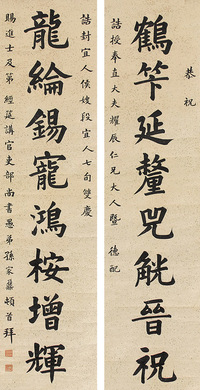 恭祝
誥授奉直大夫耀辰仁兄大人暨 德配
鶴筭延釐兕觥晉祝
誥封宜人侯嫂段宜人七旬雙慶
龍綸錫寵鴻桉增輝
賜進士及第 經筵講官吏部尚書愚弟孫家鼐頓首拜